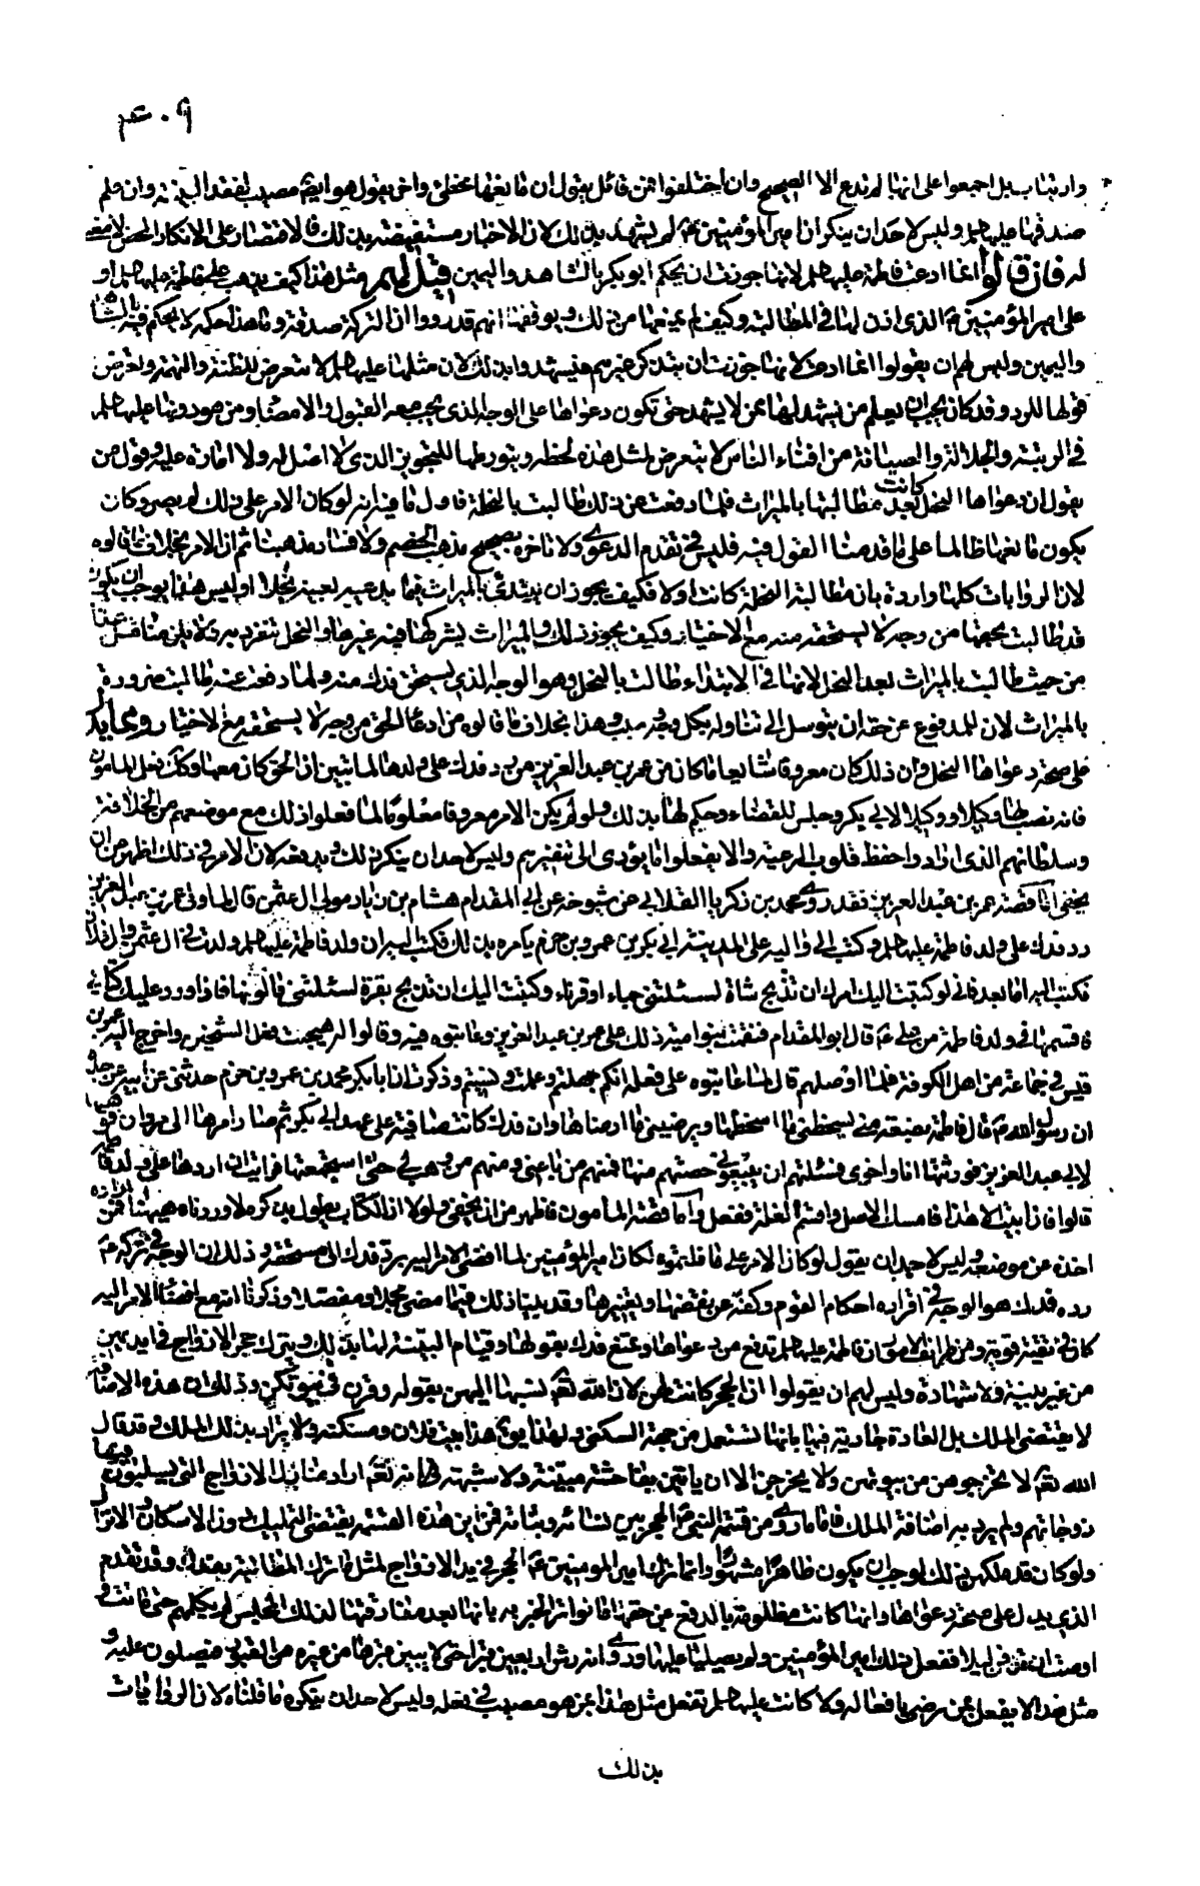 ٤٠٩
وارتياب بل اجمعوا على انها لم تدع الا الصحيح وان اختلفوا فمن قائل يقول ان مانعها مخطئ واخر يقول هو ايضا مصيب لفقد البينة وان علم
صدقها عليها السلم وليس لاحد ان ينكر ان امير المؤمنين ع لم يشهد بذلك لان الاخبار مستفيضة بذلك فالاقتصار على الانكار المحض لا معنى
له فان قالوا انما ادعت فاطمة عليها السلم لانها جوزت ان يحكم ابو بكر بالشاهد واليمين قيل لهم مثل هذا كيف يذهب على فاطمة عليها السلم او
على امير المؤمنين ع الذي اذن لها في المطالبة وكيف لم يمنعها من ذلك ويوقفها انهم قد رووا ان التركة صدقة وما هذا حكمه لا يحكم فيه بالشاهد
واليمين وليس لهم ان يقولوا انما ادعت لانها جوزت ان يتذكر غيرهم فيشهدوا بذلك لان مثلها عليها السلم لا تتعرض للظنة والتهمة وتعرض
قولها للرد وقد كان يجب ان يعلم من يشهد لها ممن لا يشهد حتى تكون دعواها على الوجه الذي يجب معه القبول والامضاء ومن هو دونها عليها السلم
في الرتبة والجلالة والصيانة من افناء الناس لا يتعرض لمثل هذه الخطة ويتورطها للتجويز الذي لا اصل له ولا امارة عليه وقول من
يقول ان دعواها النحل كانت بعد مطالبتها بالميراث فلما دفعت عن ذلك طالبت بالنحلة فاول ما فيه انه لو كان الامر على ذلك لم يضر وكان
يكون مانعها ظالما على ما قدمنا القول فيه فليس في تقدم الدعوى ولا تاخره تصحيح مذهب الخصم ولا فساد مذهبنا ثم ان الامر بخلاف ما قالوه
لان الروايات كلها واردة بان مطالبة النحلة كانت اولا فكيف يجوز ان يبتدئ بالميراث فيما يدعيه بعينه نحلا او ليس هذا يوجب ان يكون
قد طالبت بحقها من وجه لا يستحقه منه مع الاختيار وكيف يجوز ذلك والميراث يشركها فيه غيرها والنحل تنفرد به ولا يلزمنا مثل هذا
من حيث طالبت بالميراث بعد النحل لانها في الابتداء طالبت بالنحل وهو الوجه الذي يستحق فدك منه ولما دفعت عنه طالبت ضرورة
بالميراث لان للمدفوع عن حقه ان يتوسل الى تناوله بكل وجه وسبب وهذا بخلاف ما قالوه من ادعاء الحق من وجه لا يستحقه مع الاختيار ومما يدل
على صحة دعواها النحل وان ذلك كان معروفا شايعا ما كان من عمر بن عبد العزيز من رد فدك على ولدها لما تبين ان الحق كان معها وكذا فعل المامون
فانه نصب لها وكيلا ووكيلا لابي بكر وجلس للقضاء وحكم لها بذلك ولو لم يكن الامر معروفا معلوما لما فعلوا ذلك مع موضعهم من الخلافة
وسلطانهم الذي ارادوا حفظ قلوب الرعية والا يفعلوا ما يؤدي الى تنفيرهم وليس لاحد ان ينكر ذلك ويدفعه لان الامر في ذلك اظهر من ان
يخفى اما قصة عمر بن عبد العزيز فقد روى محمد بن زكريا الغلابي عن شيوخه عن ابي المقدام هشام بن زياد مولى ال عثمن قال لما ولي عمر بن عبد العزيز
رد فدك على ولد فاطمة عليها السلم وكتب الى واليه على المدينة ابي بكر بن عمرو بن حزم يامره بذلك فكتب اليه ان ولد فاطمة عليها السلم ولدت في ال عثمن وال فلان
فكتب اليه اما بعد فاني لو كتبت اليك امرك ان تذبح شاة لسئلتني جماء او قرناء وكتبت اليك ان تذبح بقرة لسئلتني ما لونها فاذا ورد عليك كتابي
فاقسمها في ولد فاطمة من علي ع قال ابو المقدام فنقمت بنو امية ذلك على عمر بن عبد العزيز وعاتبوه فيه وقالوا له هجنت فعل الشيخين وخرج اليه عمر بن
قيس في جماعة من اهل الكوفة فلما اوصلهم قال لما عاتبوه على فعله انكم جهلتم وعلمت ونسيتم وذكرت ان ابا بكر محمد بن عمرو بن حزم حدثني عن ابيه عن جده
ان رسول الله ص قال فاطمة بضعة مني يسخطني ما اسخطها ويرضيني ما ارضاها وان فدك كانت صافية على عهد ابي بكر ثم صار امرها الى مروان فوهبها
لابي عبد العزيز فورثتها انا واخوتي فسئلتهم ان يبيعوني حصتهم منها فمنهم من باعني ومنهم من وهب لي حتى استجمعتها فرايت ان اردها على ولد فاطمة
قالوا فان ابيت الا هذا فامسك الاصل واقسم الغلة ففعل واما قصة المأمون فاظهر من ان يخفى ولولا ان الكتاب يطول بذكره لاوردناه
اخذه عن موضعه وليس لاحد ان يقول لو كان الامر على ما قلتموه لكان امير المؤمنين لما افضى الامر اليه يرد فدك الى مستحقه وذلك ان الوجه في تركه ع
رده فدك هو الوجه في اقراره احكام القوم وكفه عن نقضها وتغييرها وقد بينا ذلك فيما مضى مجملا ومفصلا وذكرنا انه مع افضاء الامر اليه
كان في تقية قوية ومن طرائف الامور ان فاطمة عليها السلم تدفع من دعواها وتمنع فدك بقولها وقيام البينة لها بذلك ويترك حجر الازواج في ايديهن
من غير بينة ولا شهادة وليس لهم ان يقولوا ان الحجر كانت لهن لان الله تعالى نسبها اليهن بقوله وقرن في بيوتكن وذلك ان هذه الاضافة
لا يقتضي الملك بل العادة جارية فيها بانها تستعمل من جهة السكنى ولهذا يق هذا بيت فلان ومسكنه ولا يراد بذلك الملك وقد قال
الله تعالى لا تخرجوهن من بيوتهن ولا يخرجن الا ان ياتين بفاحشة مبينة ولا شبهة في انه تعالى اراد منازل الازواج التي يسكنون فيها
زوجاتهم ولم يرد به اضافة الملك فاما ما روي من قسمة النبي ص الحجر بين نسائه وبناته فمن اين هذه القسمة يقتضي التمليك دون الاسكان والانزال
ولو كان قد ملكهن ذلك لوجب ان يكون ظاهرا مشهورا وانما ترك امير المؤمنين ع الحجر في يد الازواج لمثل ما ترك المطالبة بفدك وقد تقدم
الذي يدل على صحة دعواها وانها كانت مظلومة بالدفع عن حقها ما تواتر الخبر به بانها بعد مفارقتها لذلك المجلس لم يكلمهم حتى ماتت و
اوصت ان تدفن ليلا ففعل ذلك امير المؤمنين ولم يصليا عليها وروى انه رش اربعين قبرا حتى لا يبين قبرها من غيره من القبور فيصلون عليه و
مثل هذا لا يفعل بمن رضي بافعاله ولا كانت عليها السلم تفعل مثل هذا بمن هو مصيب في فعله وليس لاحد ان ينكره ما قلناه لان الروايات
بذلك